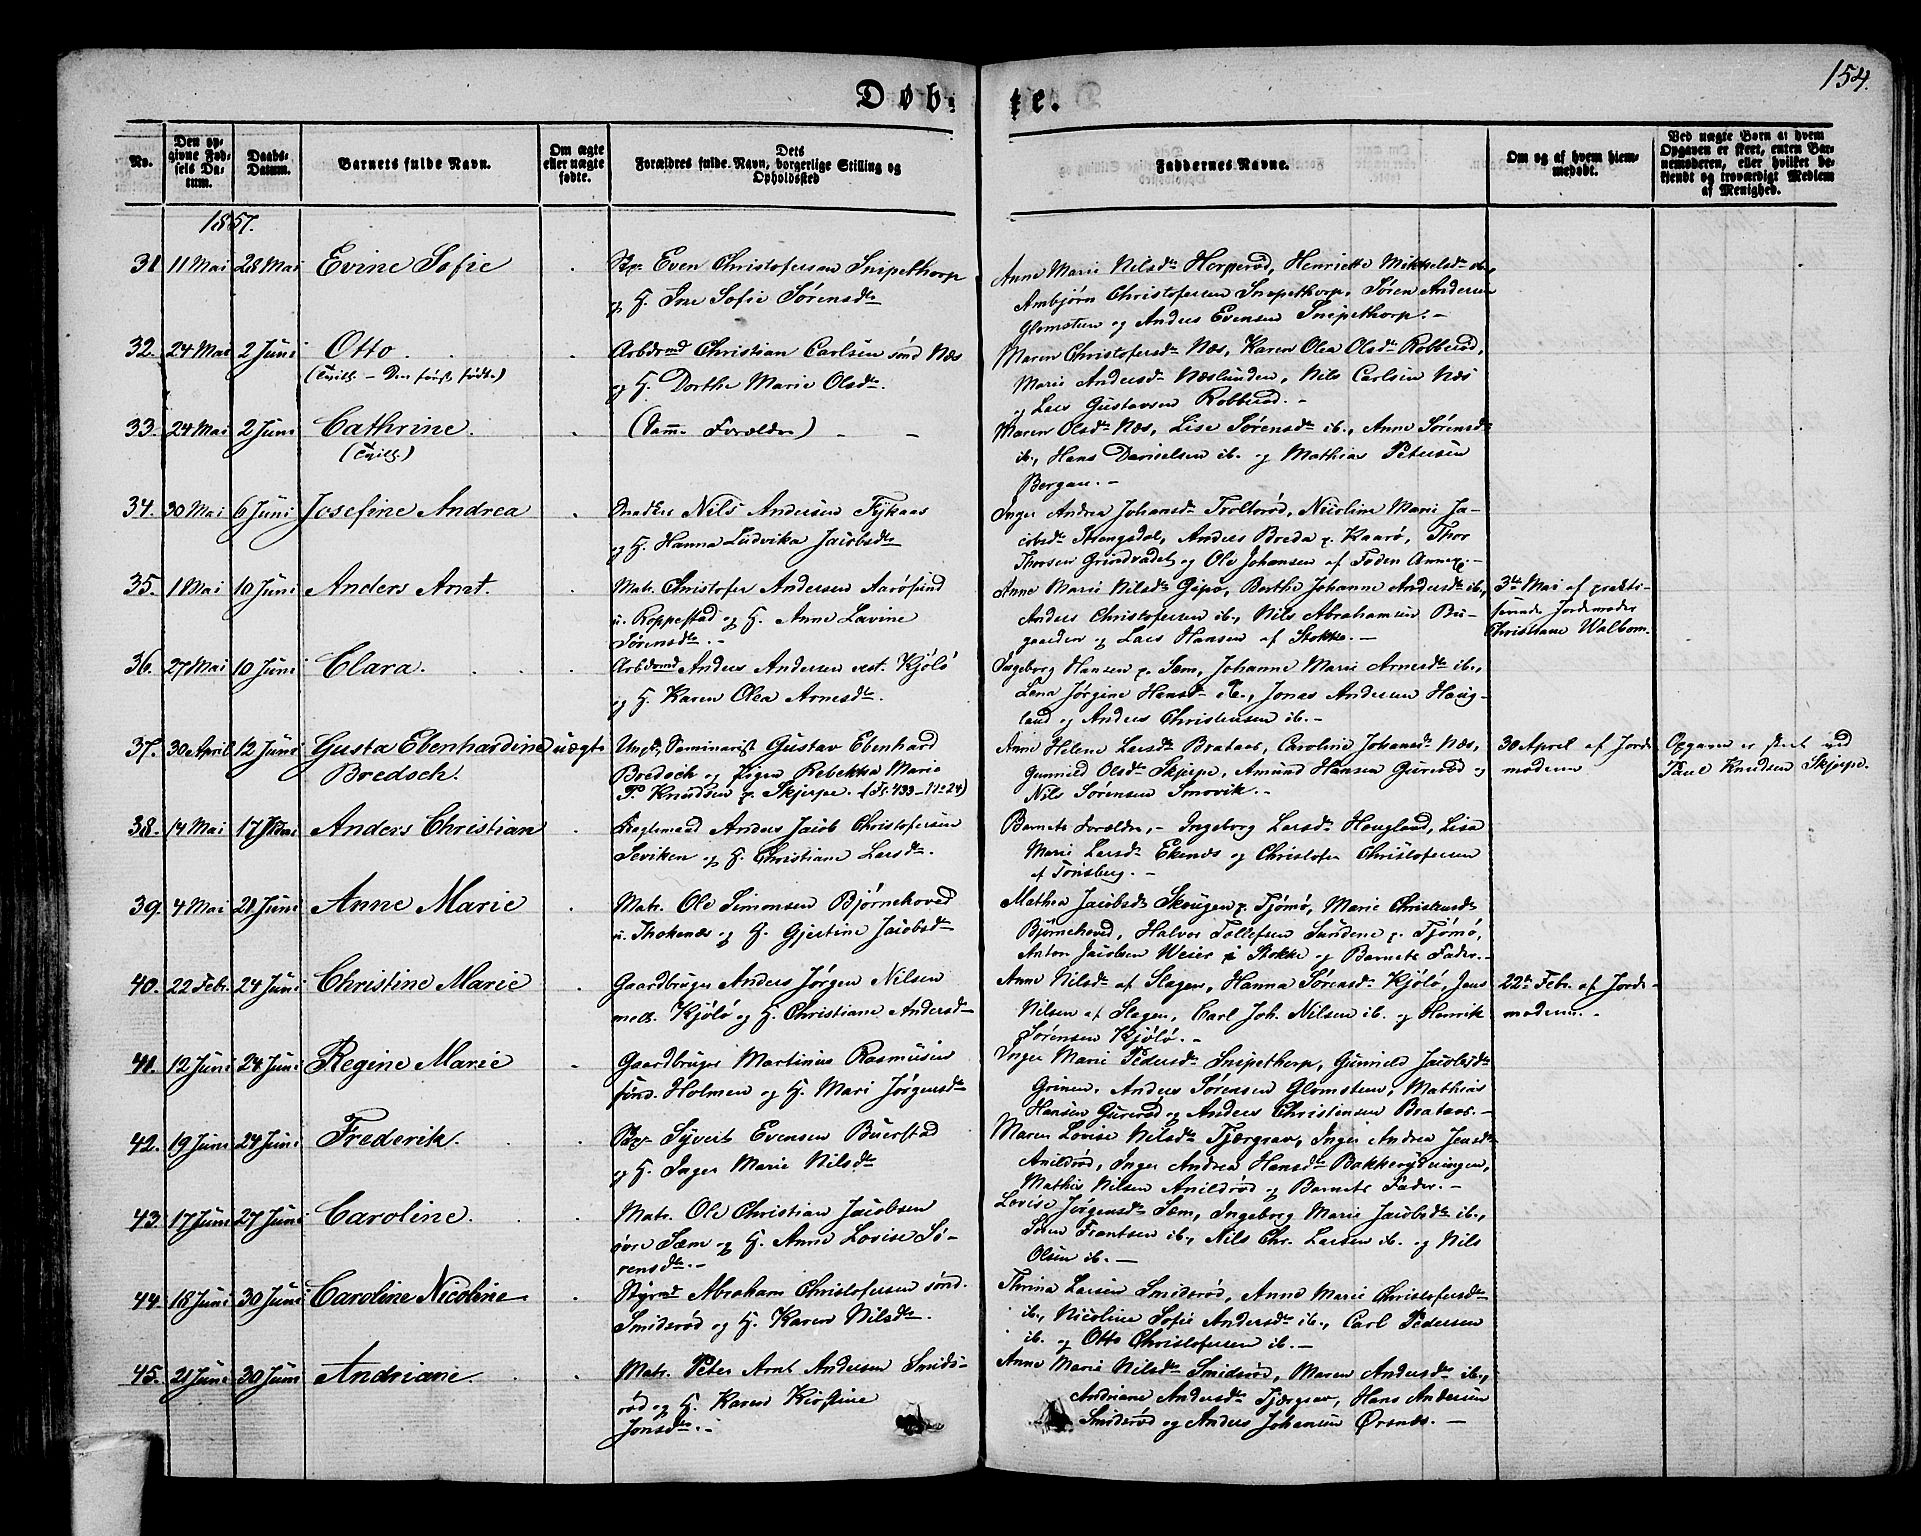 154.
Døb-
te.
No.
Den op-
givne Fød-
sels Da-
tum.
Daabs-
Datum.
Barnets fulde Navn.
Om ægte
eller uægte
fødte.
Dets
Forældres fulde Navn, borgerlige Stilling og
Opholdssted
Faddernes Navne.
Om og af hvem hjem-
medøbt.
Ved uægte Børn at hvem
Opgaven er skeet, enten Bar-
nemoderen, eller hvilket be-
kjendt og troværdigt Medlem
af Menighed.
1857.
31 11 Mai 28 Mai Evine Sofie
Even Christofersen Snipethorp
og H. Ine Sofie Sørensdr
Anne Marie Nilsdr Herperød, Henriette Mikkelsdr ib.,
Ambjørn Christofersen Snipethorp, Søren Andersen
Glomsteen og Anders Evensen Snipethorp. -
32. 24 Mai 2 Juni Otto.
(Tvill. - Den først fødte)
Arbdmd Christian Carlsen sønd Næs
og H. Dorthe Marie Olsdr.
Maren Christofersdr Næs, Karen Olea Olsdr Robberød,
Marie Andersdr Næslunden, Nils Carlsen Næs
og Lars Gustavsen Robberød. -
33. 24 Mai 2 Juni Cathrine.
(Tvill.)
(Samme Forældre)
Maren Olsdr Næs, Lise Sørensdr ib., Anne Sørensdr
ib., Hans Danielsen ib. og Mathias Petersen
Bergan. -
34. 30 Mai 6 Juni Josefine Andrea
Nils Andersen
og H. Hanna Ludvika Jacobsdr
Inger Andrea Johansdr Troltørød, Nicoline Marie Ja-
cobsdr Anders Breda p. Kaarø, Thor
Thorsen Grindvadet og Ole Johansen af Foden Annex. -
35. 1 Mai 10 Juni Anders Arnt.
Matr. Christofer Andersen Aarøsund
u. Roppestad og H. Anne Lavine
Sørensdr. -
Anne Marie Nilsdr Gipø, Berthe Johanne Andersdr ib.,
Anders Christofersen ib., Nils Abrahamsen Bu-
gaarden og Lars Hansen af Stokke. -
3de Mai af prakti-
serende Jordemoder
Christiane Walbom.
36. 27 Mai 10 Juni Clara.
Arbdmd Anders Andersen vest. Kjøløe
og H. Karen Olea Arnesdr.
Ingeborg Hansen p. Sem, Johanne Marie Arnesdr ib.,
Lena Jørgine Hansdr ib., Jonas Andersen Haug-
land og Anders Christensen ib. -
37. 30 April 12 Juni Gusta Ebenhardine uægte
Bredsch.
Ungk. Seminarist Gustav Ebenhard
Bredsch og Pigen Rebekka Marie
P. Knudsen p. Skjerpe. (fl. 433 - No 24)
Anne Helene Larsdr Brataas, Caroline Johansdr Næs,
Gunnild Olsdr Skjerpe, Amund Hansen Gurerød og
Nils Sørensen Smovik. -
30 April af Jorde-
moderen
Opgaven er skeet ved
Paul Knudsen Skjerpe.
38. 14 Mai 17 Anders Christian
Anders Jacob Christofersen
Seviken og H. Christiane Larsdr.
Barnets Forældre, - Ingeborg Larsdr Haugland, Lisa
Marie Larsdr Ekenes og Christofer Christofersen
af Tønsberg. -
39. 4 Mai 21 Juni Anne Marie
Matr. Ole Simonsen Bjørnehoved
u. Thokenæs og H. Gjertine Jacobsdr
Mathea Jacobsdr Skougen p. Tjømø, Marie Christensdr
Bjørnehoved, Halvor Tollefsen Sundene p. Tjømø,
Anton Jacobsen Weier i Stokke og Barnets Fader. -
40. 22 Febr. 24 Juni Christine Marie
Gaardbruger Anders Jørgen Nilsen
mell. Kjøløe og H. Christiane Andersdr
Anne Nilsdr af Slagen, Hanna Sørensdr Kjøløe, Jens
Nilsen af Slagen, Carl Joh. Nilsen ib. og Henrik
Sørensen Kjøløe. -
22de Febr. af Jorde-
moderen. -
41. 12 Juni 24 Juni Regine Marie
Gaardbruger Martinus Rasmusen
sønd. Holmen og H. Mari Jørgensdr
Inger Marie Pedersdr Snipethorp, Gunnild Jacobsdr
Grinen, Anders Sørensen Glomsteen, Mathias
Hansen Gurerød og Anders Christensen Brataas. -
42. 19 Juni 24 Juni Frederik.
Syvert Evensen Buerstad
og H. Inger Marie Nilsdr
Maren Lovise Nilsdr Tjærgrav, Inger Andrea Jensdr
Anildrød, Inger Andrea Hansdr Bakkerydningen,
Mathis Nilsen Anildrød og Barnets Fader. -
43. 17 Juni 27 Juni Caroline.
Matr. Ole Christian Jacobsen
øvre Sem og H. Anne Lovise Sø-
rensdr. -
Lovise Jørgensdr Sem, Ingeborg Marie Jacobsdr ib.,
Søren Frantsen ib., Nils Chr. Larsen ib. og Nils
Olsen ib. -
44. 18 Juni 30 Juni Caroline Nicoline
Styrmd Abraham Christofersen sønd.
Smidsrød og H. Karen Nilsdr.
Thrina Larsen Smidsrød, Anne Marie Christofersdr
ib., Nicoline Sofie Andersdr ib., Carl Pedersen
ib. og Otto Christofersen ib. -
45. 21 Juni 30 Juni Andriane.
Matr. Peter Arnt Andersen Smids-
rød og H. Karen Kirstine
Jonsdr. -
Anne Marie Nilsdr Smidsrød, Maren Andersdr ib.,
Andriane Andersdr Tjærgrav, Hans Andersen
Smidsrød og Anders Johansen Ørsnes. -